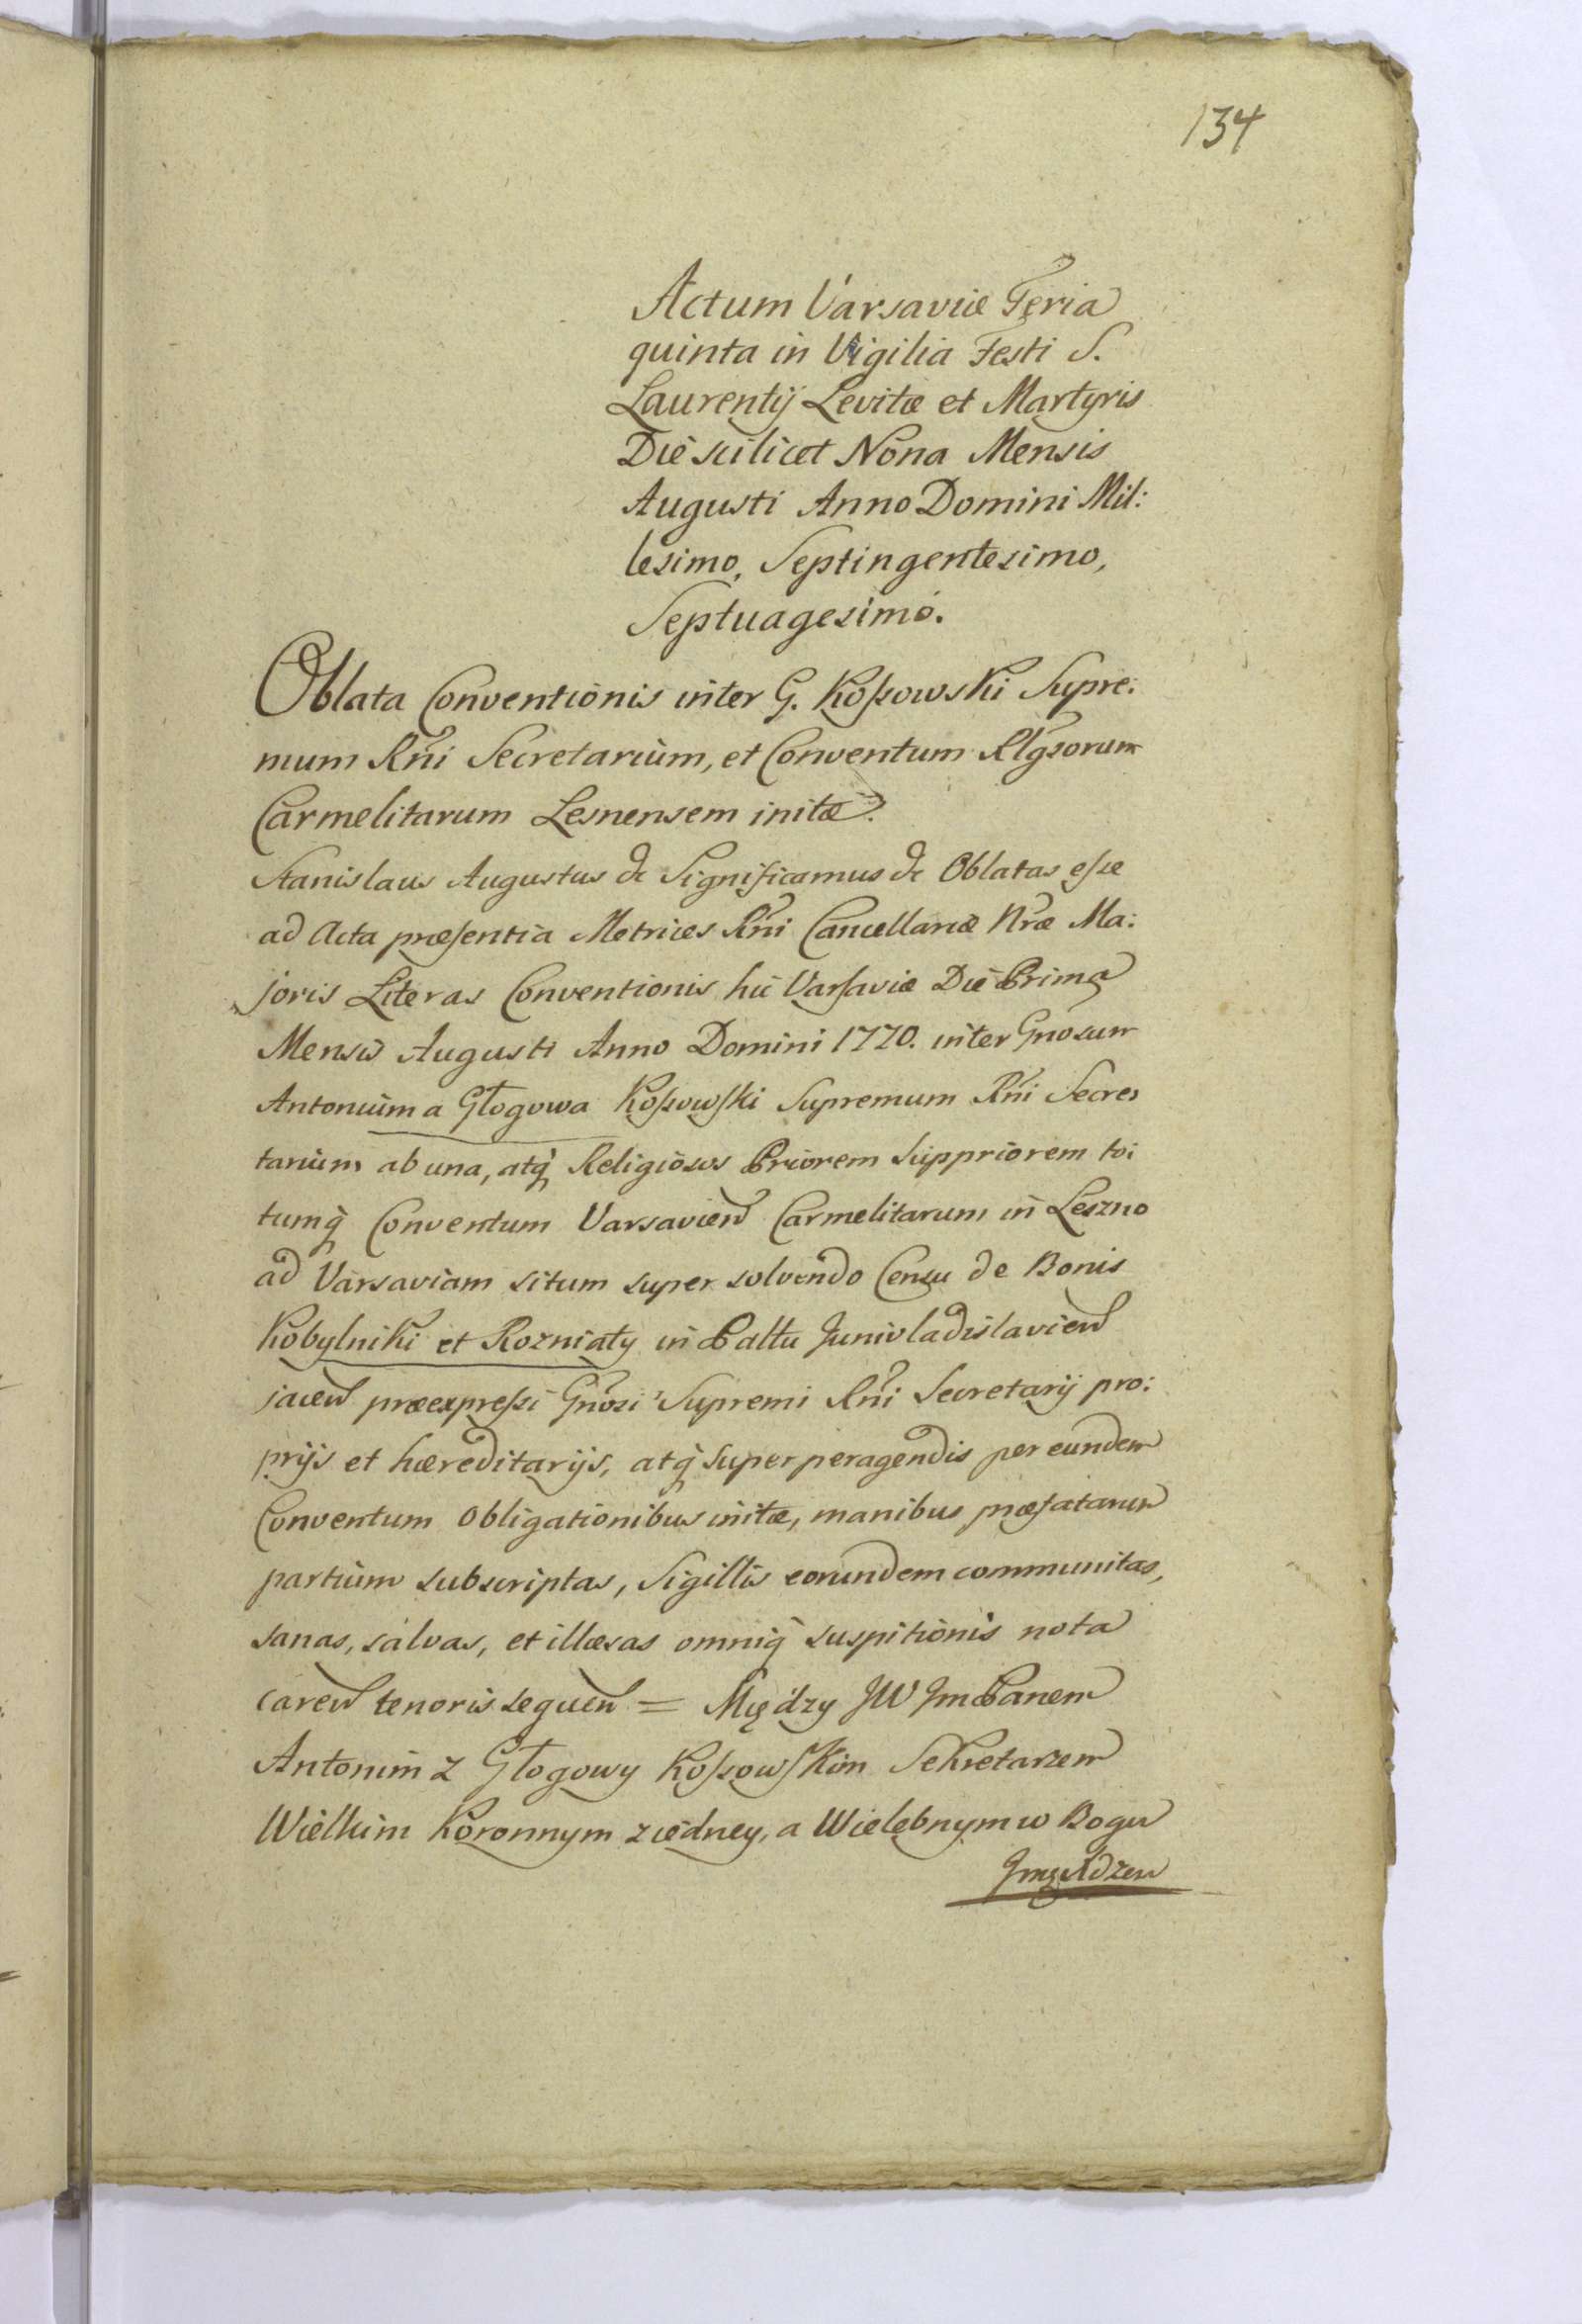 134
Actum Varsaviæ Feria
quinta in Vigilia Festi S.
Laurentij Levitæ et Martyris
Die scilicet Nona Mensis
Augusti Anno Domini Mil:
lesimo, Septingentesimo,
Septuagesimo.
Oblata Conventionis inter G. Koſsowski Supre:
mum Rñi Secretarium, et Conventum Rlgsorum
Carmelitarum Lesnensem initæ.
Stanislaus Augustus &c Significamus &c Oblatas eſse
ad Acta præſentia Metrices Rñi Cancellariæ Nræ Ma:
joris Literas Conventionis hic Varſaviæ Die Prima
Mensis Augusti Anno Domini 1770. inter Gnosum
Antonium a Głogowa Koſsowſki Supremum Rñi Secre:
tarium ab una, atq̀ Religiosos Priorem Suppriorem to:
tumq̀ Conventum Varsavien Carmelitarum in Leszno
ad Varsaviam situm super solvendo Censu de Bonis
Kobylniki et Rozniaty in Palttu Junivladislavien
jacen præexpreſsi Gnosi Supremi Rñi Secretarij pro:
prijs et hæreditarijs, atq̀ super peragendis per eundem
Conventum Obligationibus initæ, manibus præfatarum
partium subscriptas, Sigillis eorundem communitas,
sanas, salvas, et illæsas omniq̀ suspitionis nota
caren tenoris sequen = Między JW JmPanem
Antonim z Głogowy Koſsowſkim Sekretarzem
Wielkim Koronnym z iedney, a Wielebnym w Bogu